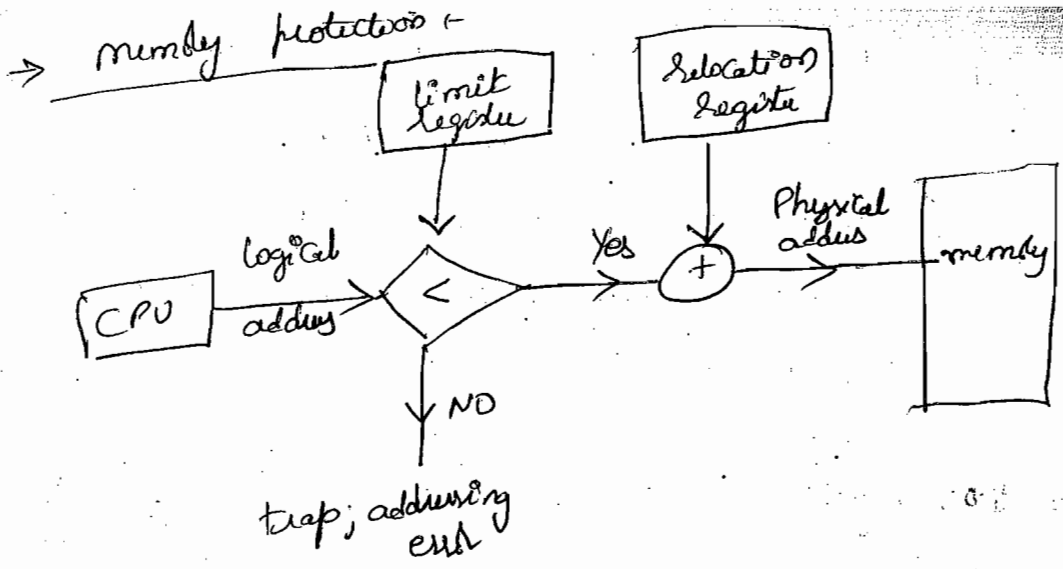 → memory protection :-
limit
register
Relocation
register
CPU
Logical
address
<
Yes
+
Physical
address
memory
NO
trap; addressing
error